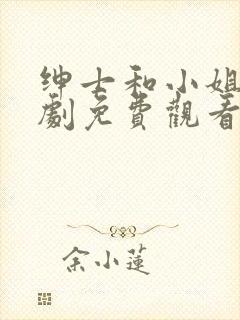 绅士和小姐
劇免費觀看
余小蓮